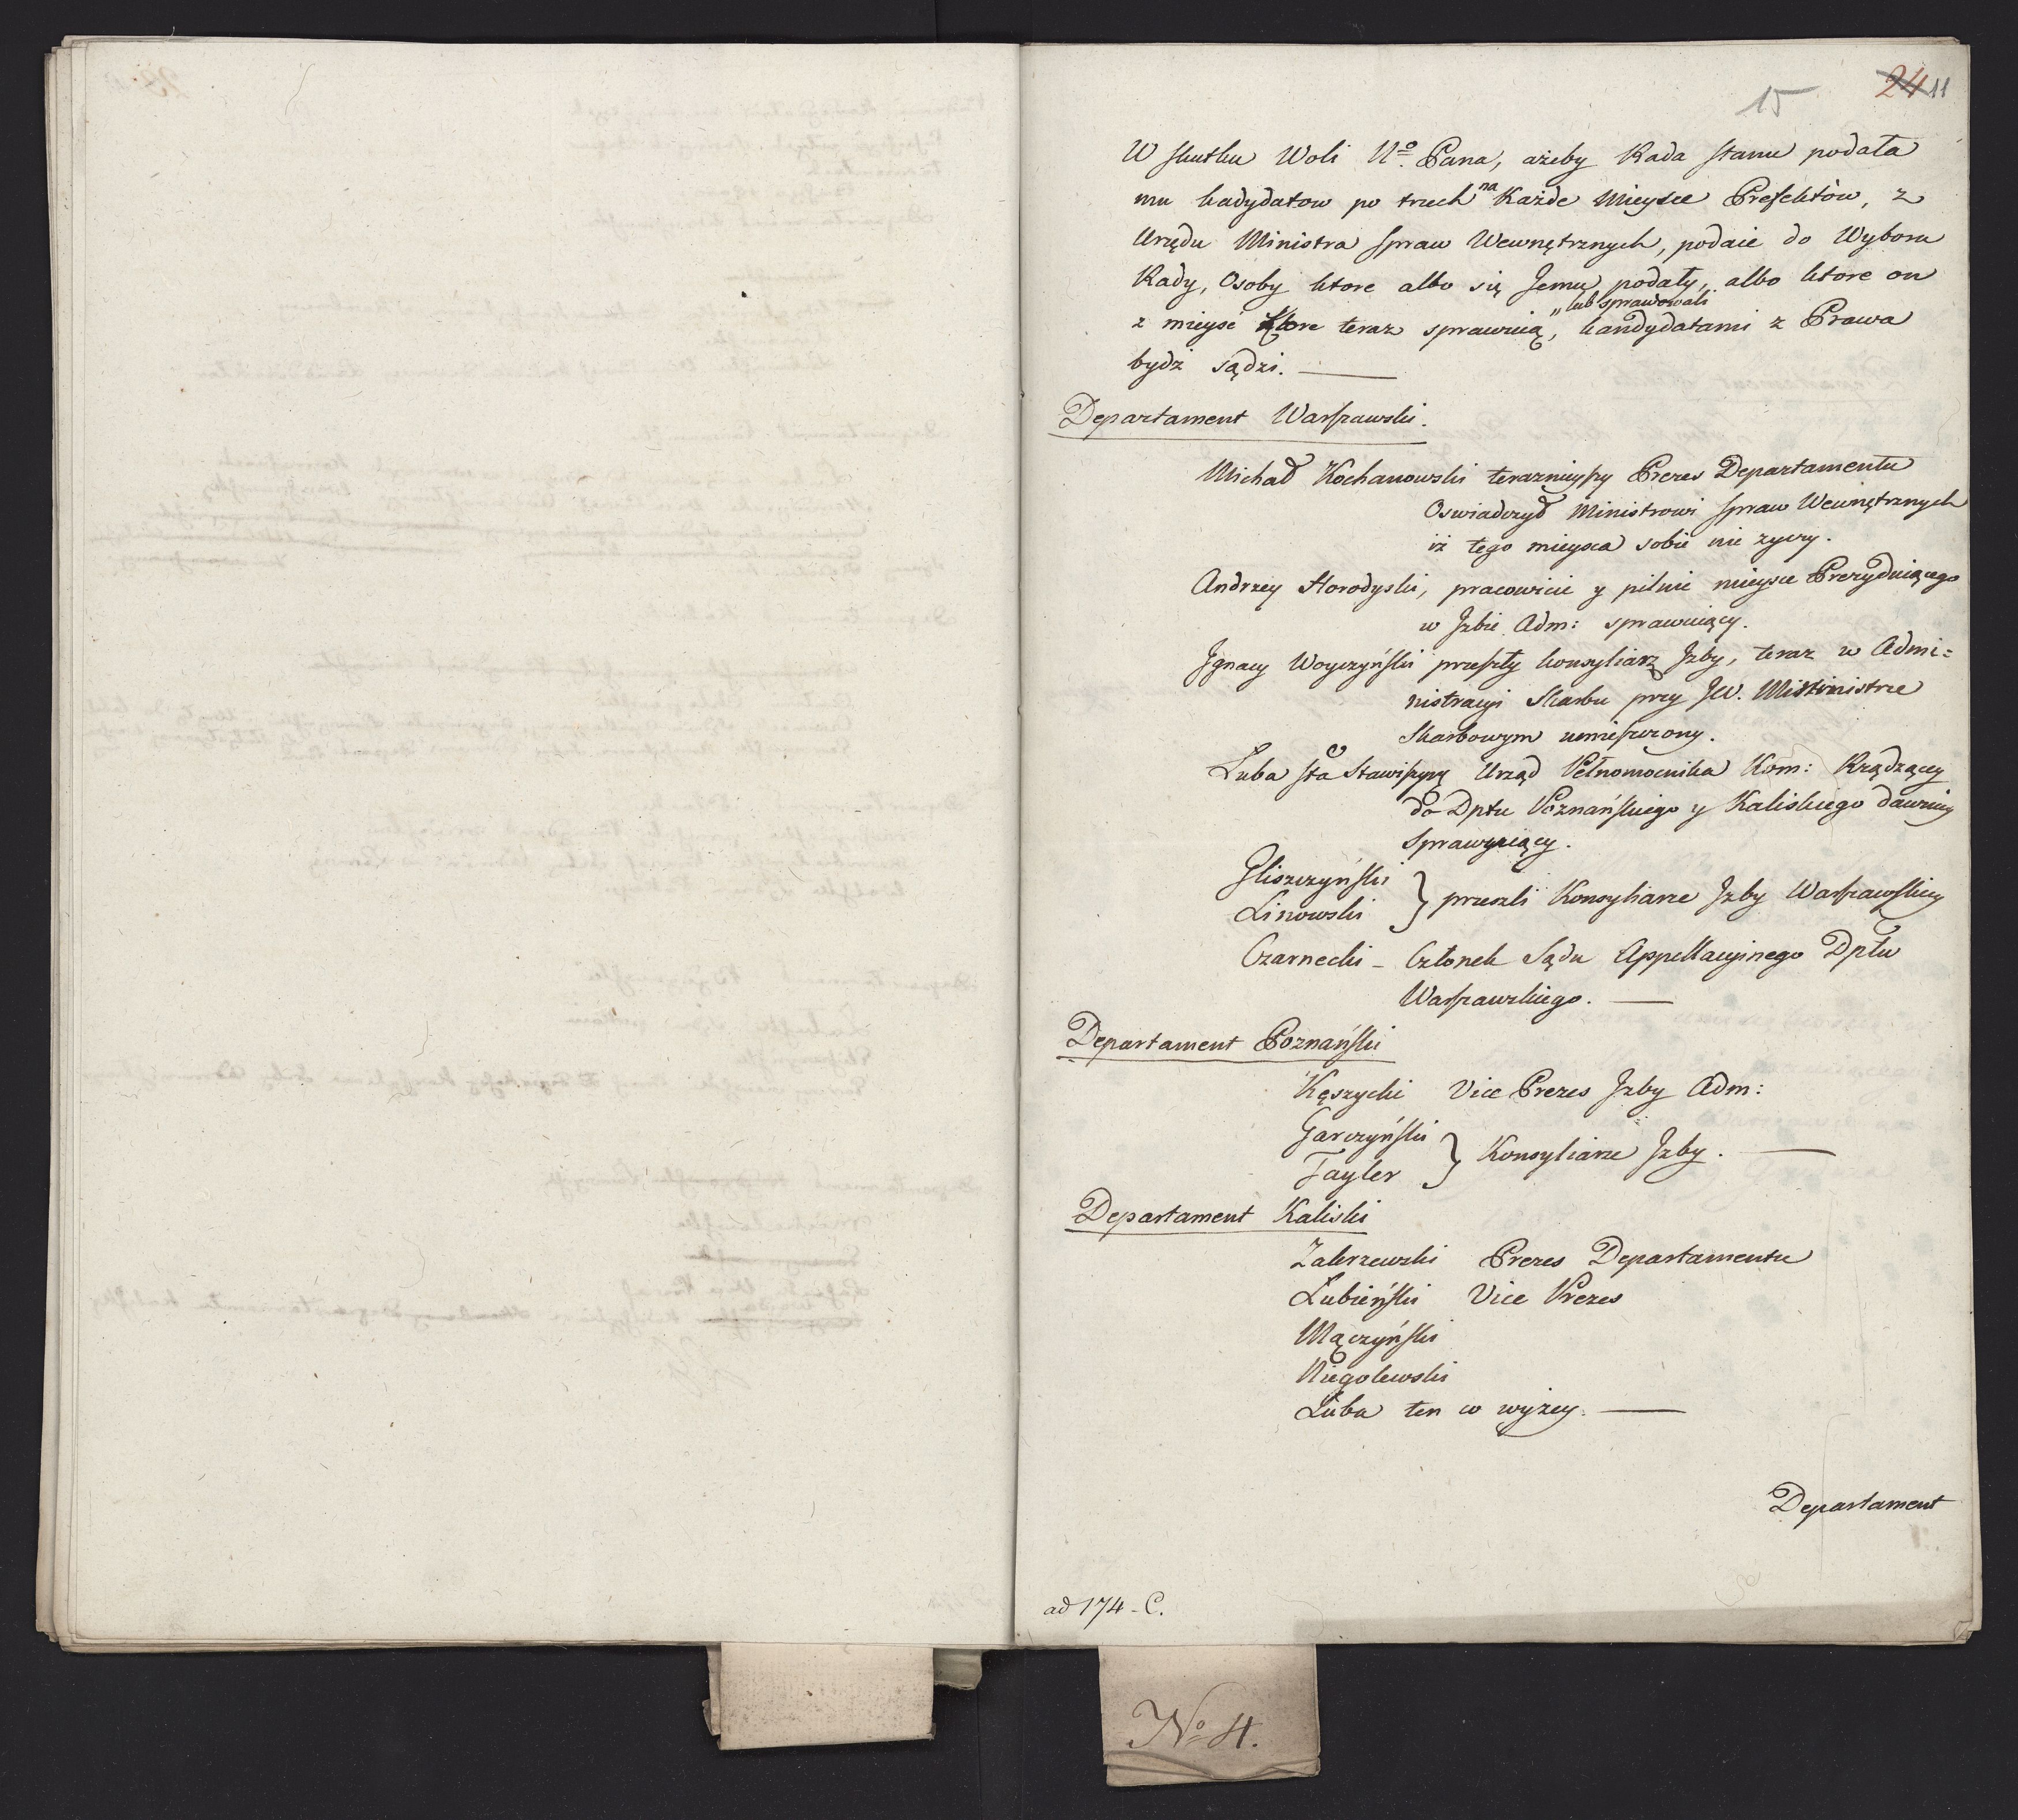 15
24 11
W skutku Woli No. Pana, ażeby Rada Stanu podała
mu kadydatow po trzech na Każde Mieysce Prefektów, z
Urzędu Ministra Spraw Wewnętrznych, podaie do Wyboru
Rady, Osoby ktore albo się Jemu podały, albo ktore on
z mieysć ktore teraz sprawuią, „lub sprawowali kandydatami z Prawa
bydź sądzi. —
Departament Warszawski.
Michał Kochanowski teraznieyszy Prezes Departamentu
Oswiadczył Ministrowi Spraw Wewnętrznych
iż tego mieysca sobie nie zyczy.
Andrzey Horodyski, pracowicie y pilnie mieysce Prezyduiącego
w Jzbie Adm: sprawuiący.
Jgnacy Woyczyński przeszły konsyliarz Jzby, teraz w Admi=
nistracyi Skarbu przy JW. Ministrze
Skarbowym umieszczony.
Luba Sta Stawiszyn Urząd Pełnomocnika Kom: Rządzącey
do Dptu Poznańskiego y Kaliskiego dawniey
Sprawuiący.
Gliszczyński
Linowski } przeszli Konsyliarze Jzby Warszawskiey
Czarnecki – Członek Sądu Appellacyinego Dptu
Warszawskiego. —
Departament Poznański
Kęszycki Vice Prezes Jzby Adm:
Garczyński
Tayler } Konsyliarze Jzby. —
Departament Kaliski
Zakrzewski Prezes Departamentu
Lubieński Vice Prezes
Mączyński
Niegolewski
Luba ten co wyżey. —
Departament
ad 174 - C.
No 4.